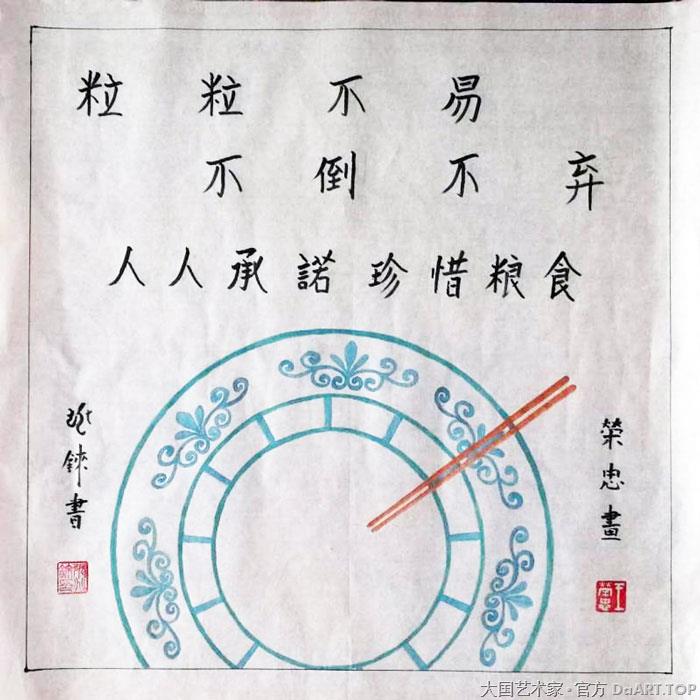 粒粒不易
不倒不弃
人人承諾珍惜粮食
錸書
榮忠畫
大国艺术家·官方 DaART.TOP